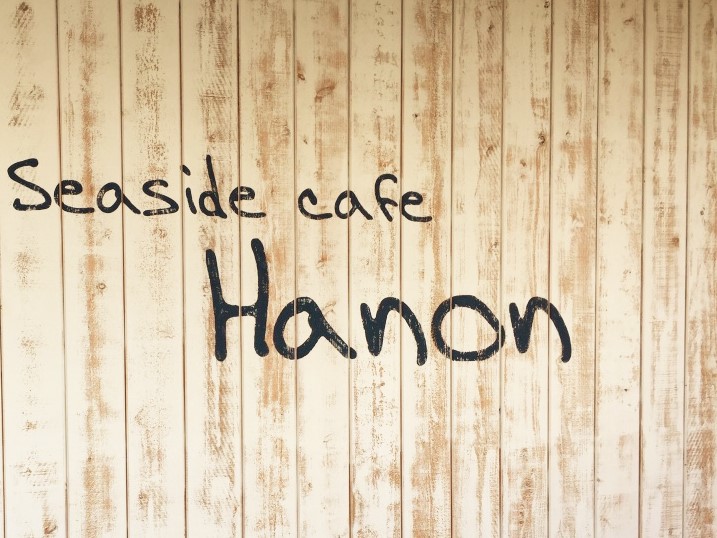 Seaside cafe
Hanon